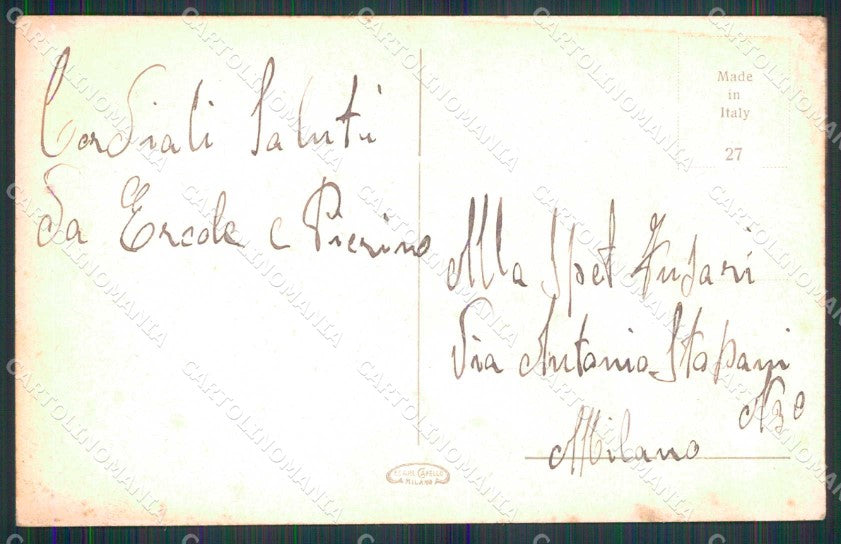 Cordiali Saluti
da Ercole e Pierino
Made
in
Italy
27
Alla Spet Fusari
Via Antonio Stopani
N 3º
Milano
MILANO
CARTOLINOMANIA